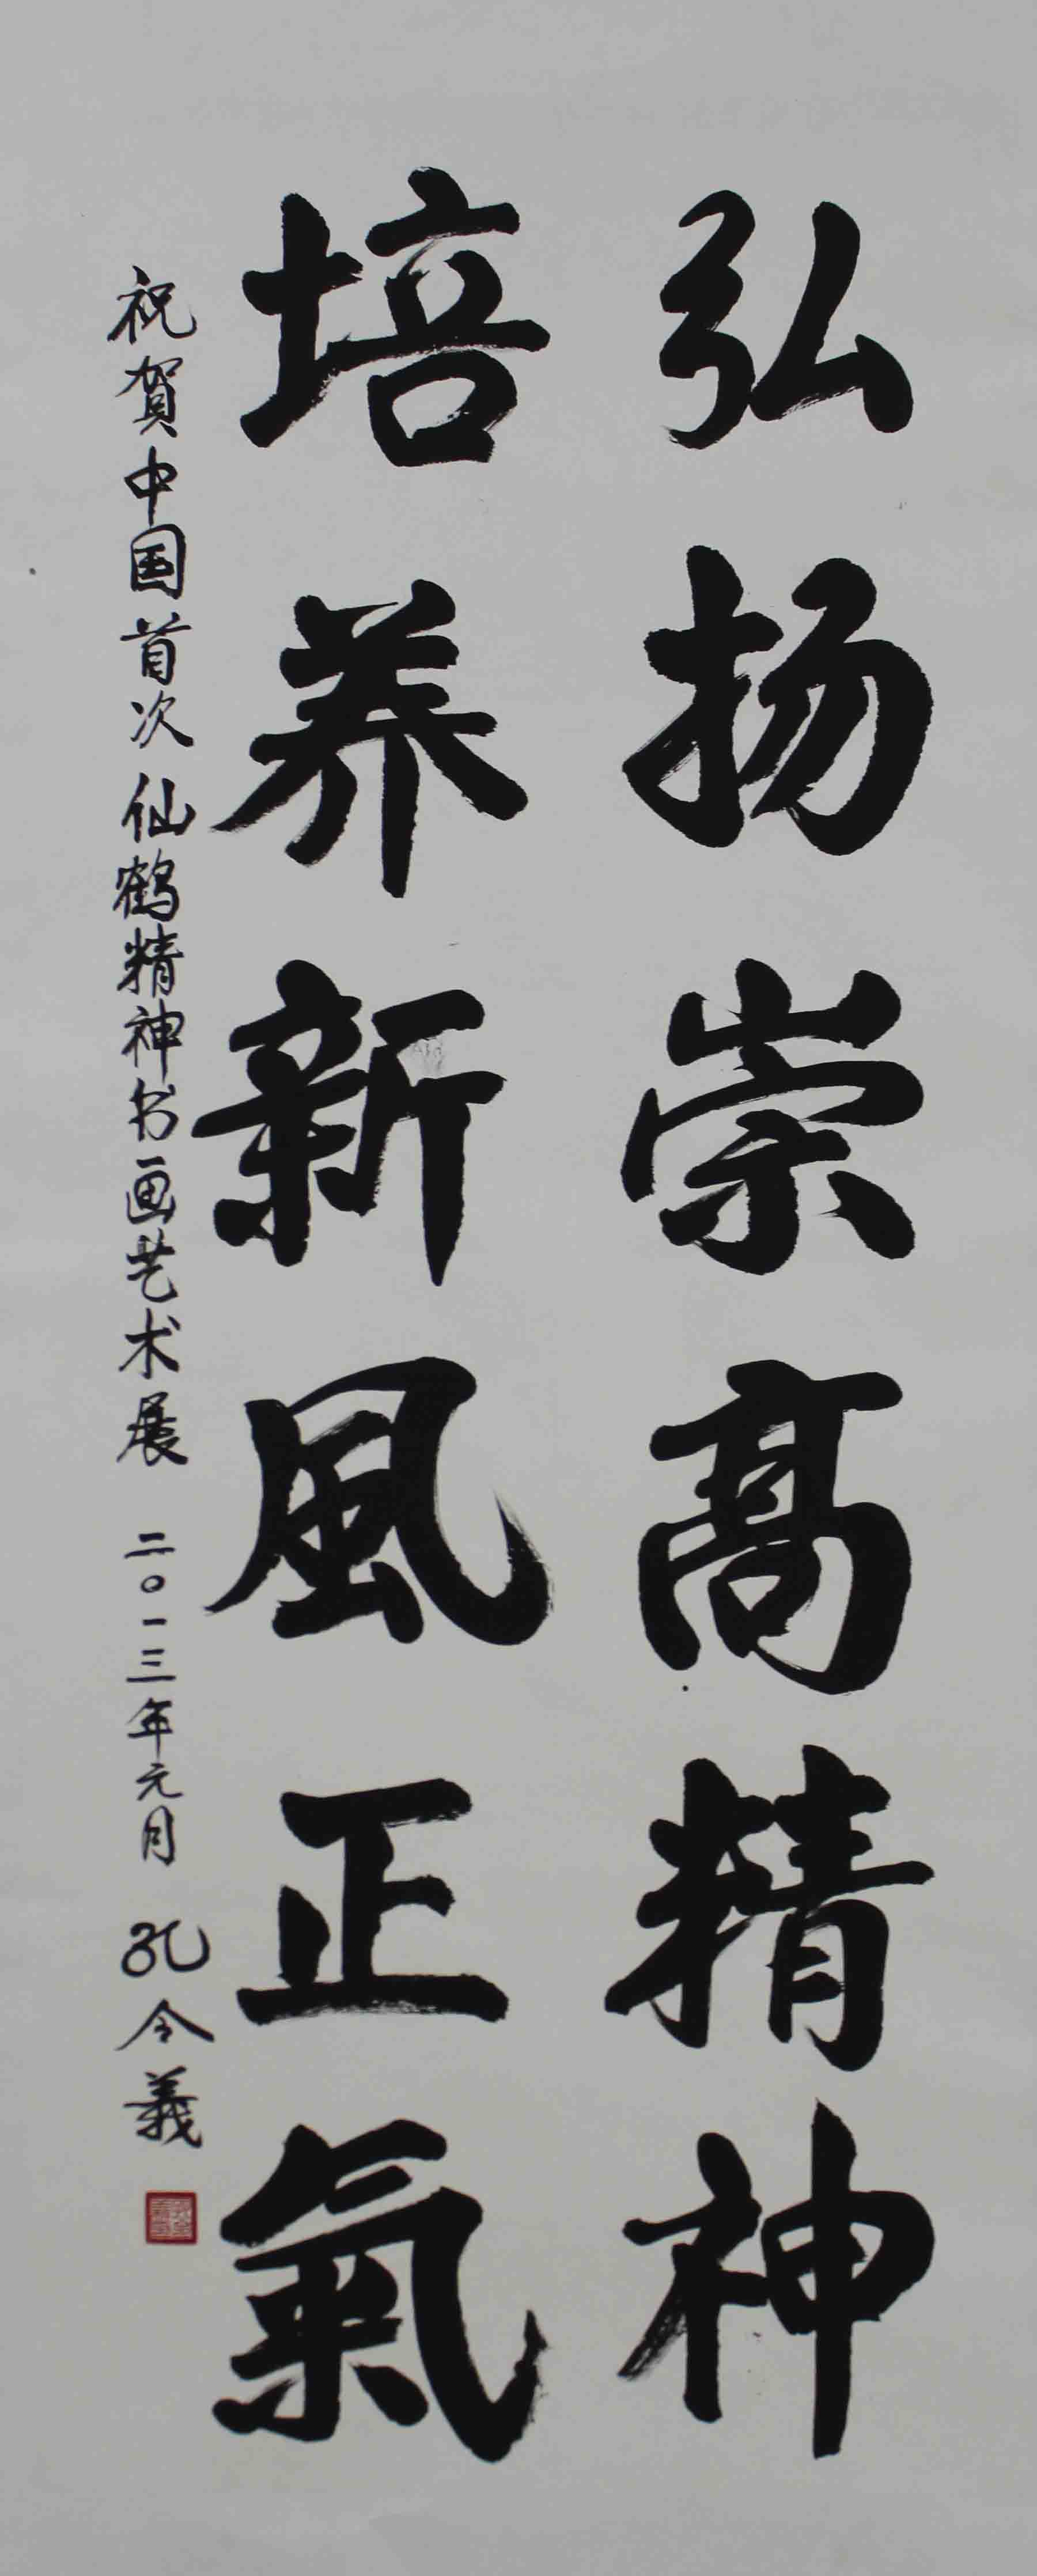 弘扬崇高精神
培养新風正氣
祝賀中国首次仙鹤精神书画艺术展 二〇一三年元月 孔令義